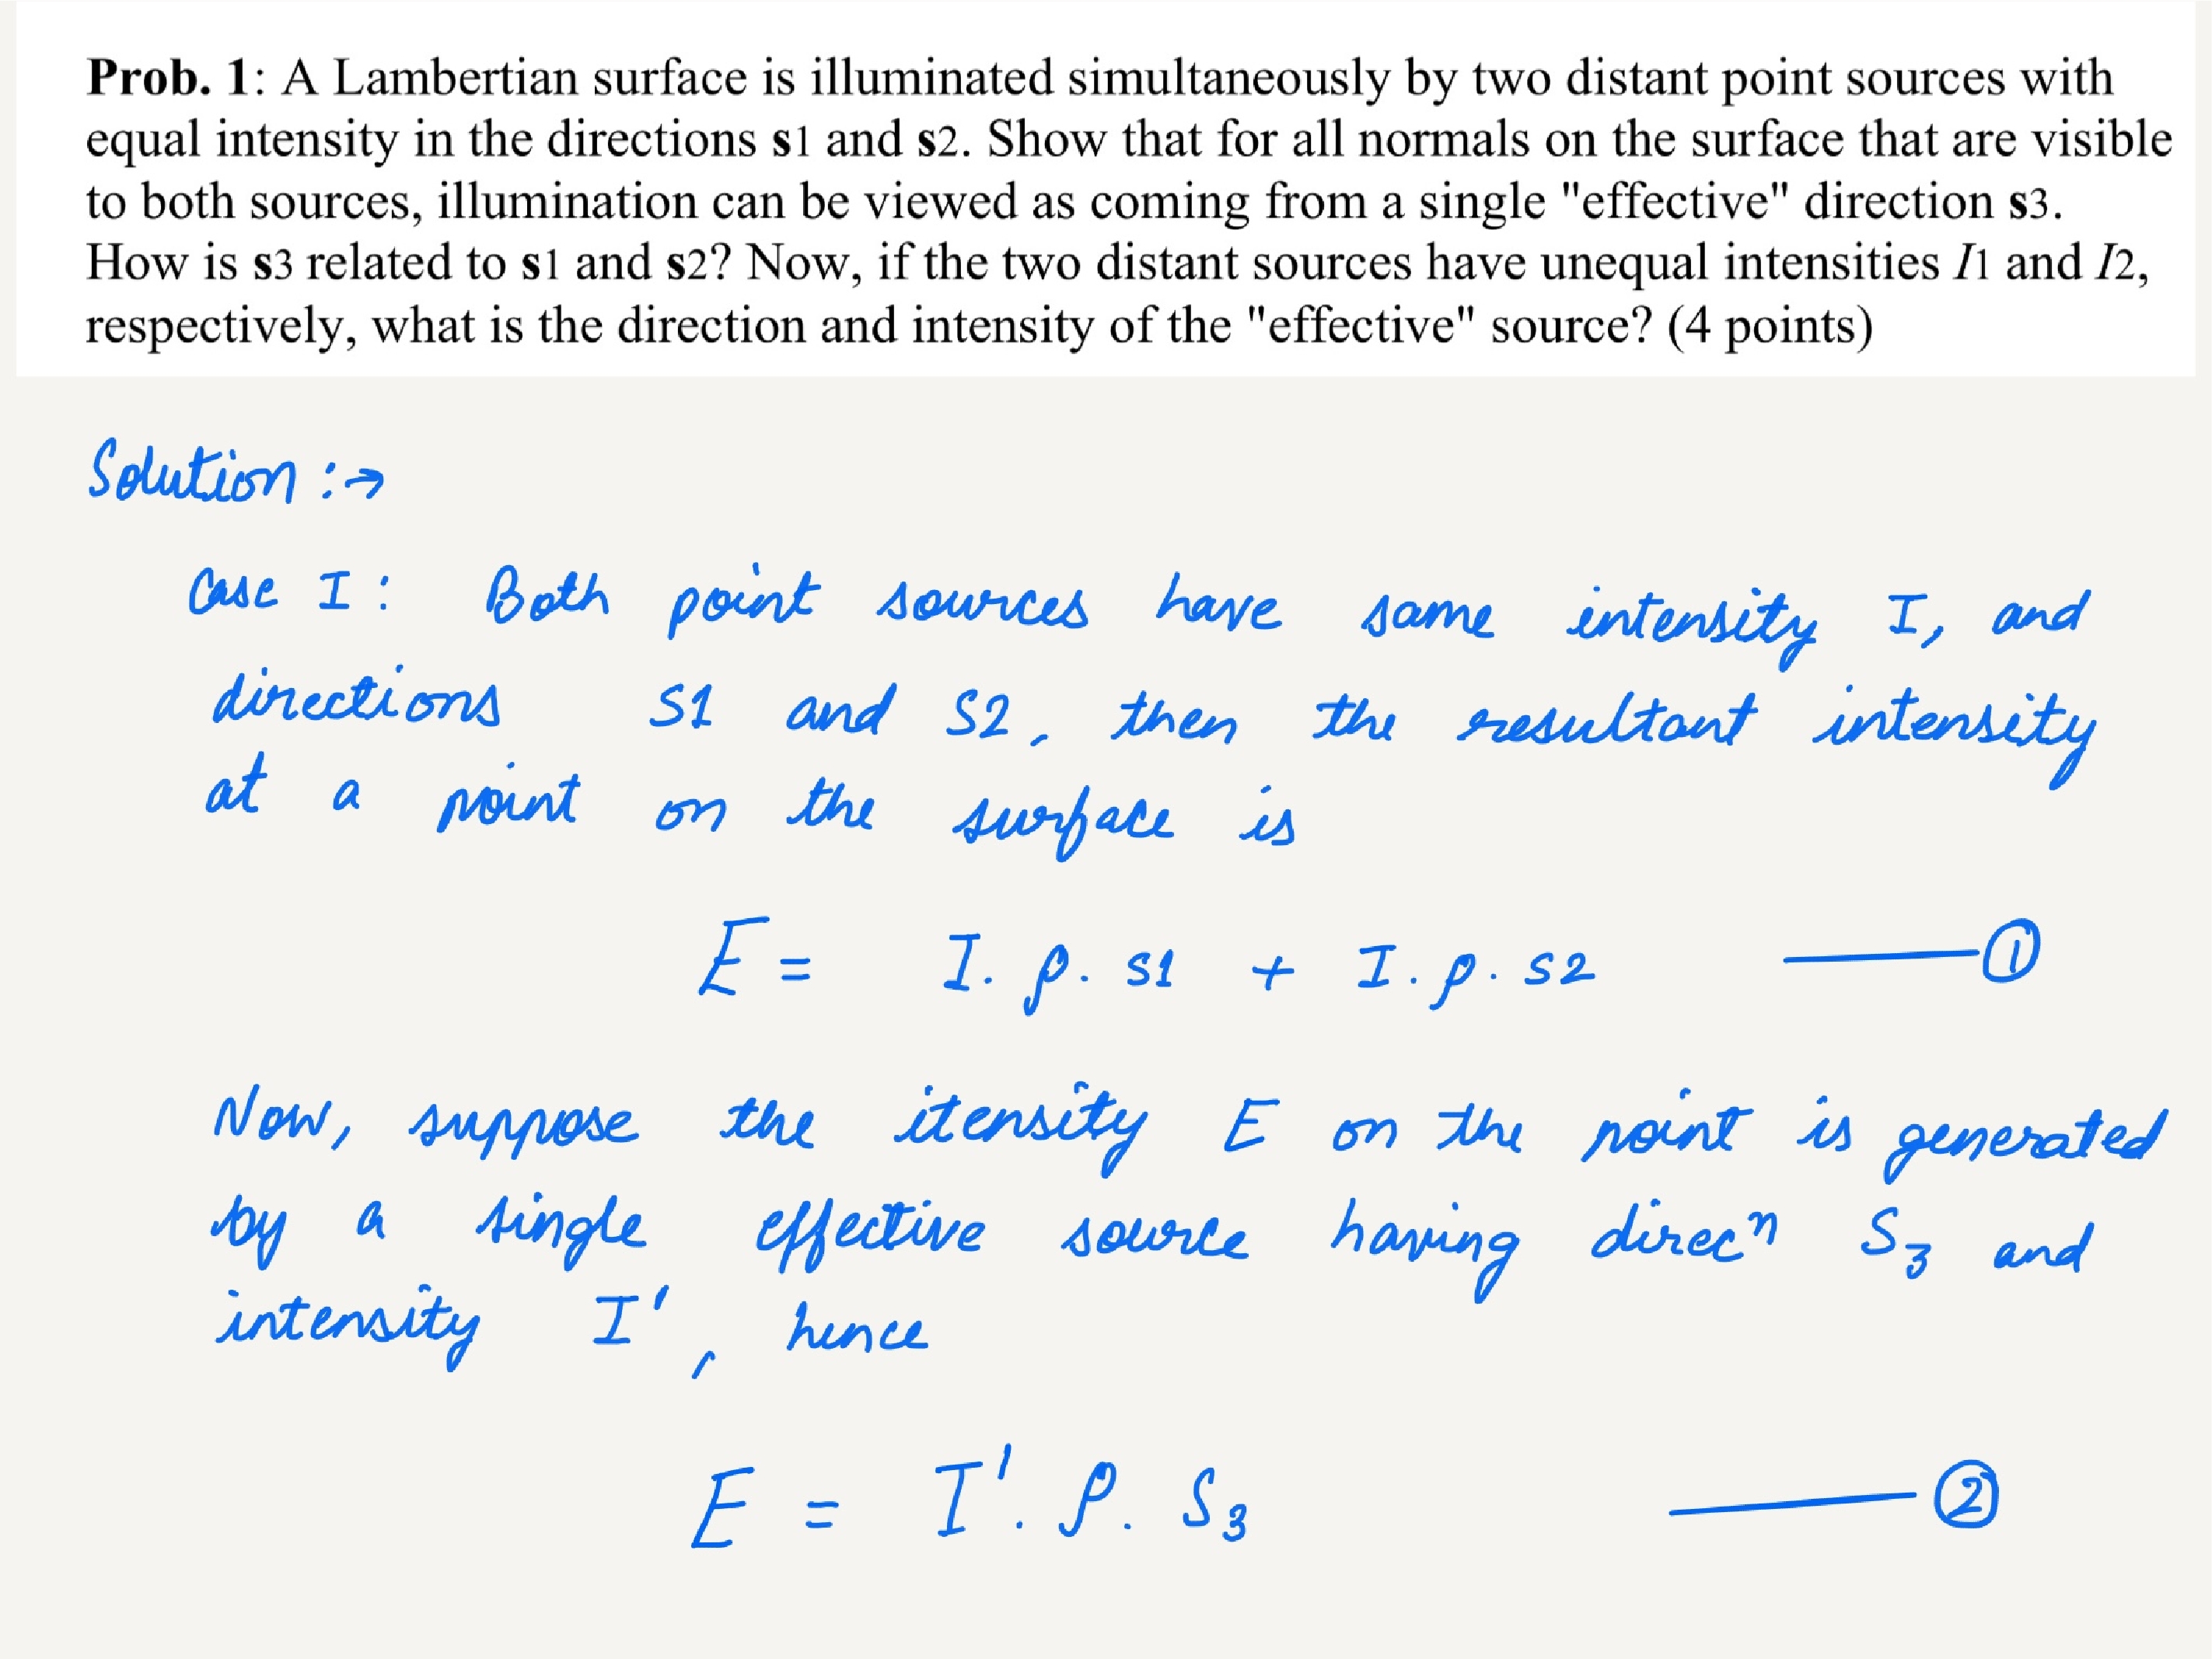 Prob. 1: A Lambertian surface is illuminated simultaneously by two distant point sources with
equal intensity in the directions s1 and s2. Show that for all normals on the surface that are visible
to both sources, illumination can be viewed as coming from a single "effective" direction s3.
How is s3 related to s1 and s2? Now, if the two distant sources have unequal intensities I1 and I2,
respectively, what is the direction and intensity of the "effective" source? (4 points)
Solution :→
Case I : Both point sources have same intensity I, and
directions S1 and S2, then the resultant intensity
at a point on the surface is
E = I. ρ. S1 + I. ρ. S2 —— ①
Now, suppose the itensity E on the point is generated
by a single effective source having direcⁿ S₃ and
intensity I', hence
E = I'. ρ. S₃ —— ②